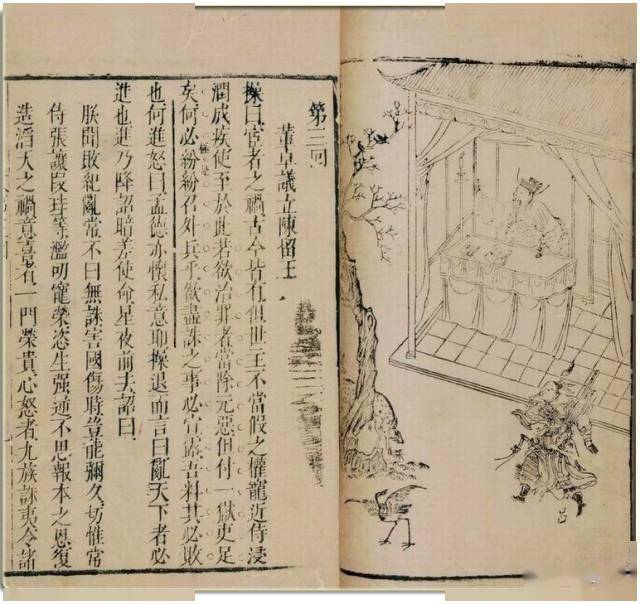 第三回
董卓議立陳留王
操曰宦者之禍古今皆有但世主不當假之權寵近侍浸
潤成疾使至於此若欲治罪者當除元惡但付一獄吏足
矣何必紛紛召外兵乎欲盡誅之事必宣露吾料其必敗
極是
也何進怒曰孟德亦懷私意耶操退而言曰亂天下者必
進也進乃降詔暗差使命星夜前去詔曰
朕聞敗紀亂常不曰無誅害國傷時豈能彌久切惟常
侍張讓段珪等濫叨寵榮恣生強逆不思報本之恩復
造滔天之禍意喜者一門榮貴心怒者九族誅夷今諸
呂